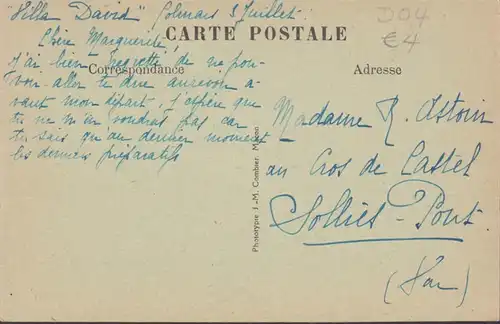 "Villa David" Colmars 3 Juillet.
D04
€4
Chère Marguerite,
CARTE POSTALE
J'ai bien regretté de ne pou-
Correspondance
Adresse
voir aller te dire aurevoir a-
vant mon départ, j'espère que
tu ne m'en voudras pas car
tu sais qu'au dernier moment
les derniers préparatifs
Madame R. Astoin
au Cros de Castel
Solliès-Pont
(Var)
Phototypie J.-M. Combier Mâcon